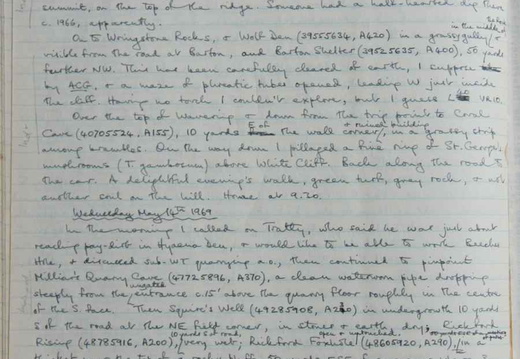 summit, on the top of the ridge. Someone had a half-hearted dig there
c. 1966, apparently.
in the middle of
On to Wringstone Rocks, & Wolf Den (39555634, A420) in a grassy gully, &
visible from the road at Barton, and Barton Shelter (39525635, A400), 50 yards
further NW. This has been carefully cleared of earth, I suppose
by ACG, & a maze of phreatic tubes opened, leading W just inside
the cliff. Having no torch I couldn't explore, but I guess L VR10.
Over the top of Wavering & down from the trig point to Coral
Cave (40705524, A155), 10 yards E of the wall corner, in a grassy strip
among brambles. On the way down I pillaged a fine ring of St. George's
mushrooms (T. gambosum) above White Cliff. Back along the road to
the car. A delightful evening's walk, green turf, grey rock, & not
another soul on the hill. Home at 9.20.
Wednesday May 14th 1969
In the morning I called on Tratty, who said he was just about
reaching pay-dirt in Hyaena Den, & would like to be able to work Beeche
Hole, & discussed sub-WT quarrying a.o., then continued to pinpoint
Milliar's Quarry Cave (47725896, A370), a clean waterworn pipe dropping
steeply from the ungated entrance c.15' above the quarry floor roughly in the centre
of the S face. Then Squire's Well (49285908, A250) in undergrowth 10 yards
S of the road at the NE field corner, in stones & earth, dry; Rickford
Rising (48785916, A200), very wet; Rickford Foxhole (48605920, A290), in